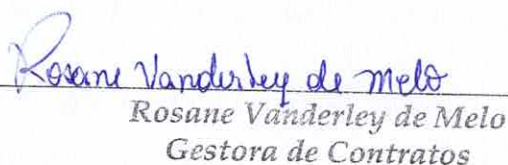 Rosane Vanderley de Melo
Rosane Vanderley de Melo
Gestora de Contratos